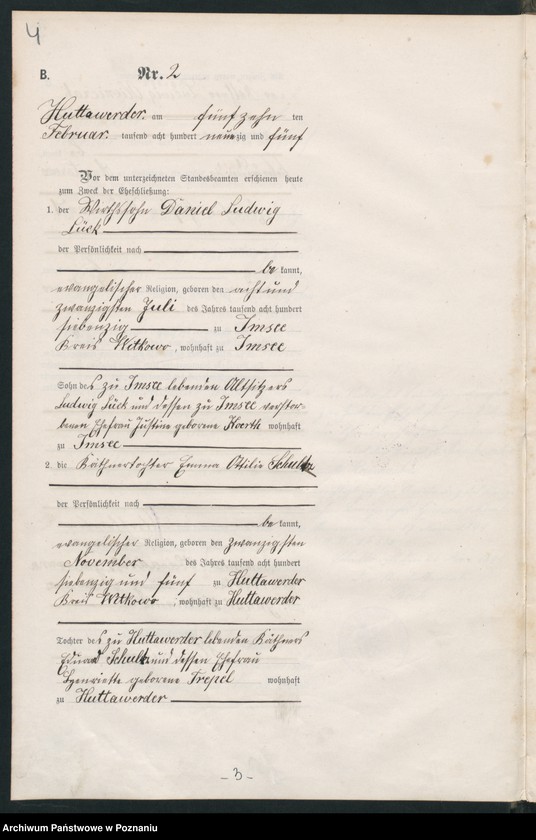 4
B. Nr. 2
Huttawerder am fünfzehn ten
Februar tausend acht hundert neunzig und fünf
Vor dem unterzeichneten Standesbeamten erschienen heute
zum Zweck der Eheschließung:
1. der Wirthssohn Daniel Ludwig
Lück
der Persönlichkeit nach
be kannt,
evangelischer Religion, geboren den acht und
zwanzigsten Juli des Jahres tausend acht hundert
siebenzig zu Imsee
Kreis Witkowo, wohnhaft zu Imsee
Sohn des zu Imsee lebenden Altsitzers
Ludwig Lück und dessen zu Imsee verstor-
benen Ehefrau Justine geborene Koerth wohnhaft
zu Imsee
2. die Käthnertochter Emma Ottilie
der Persönlichkeit nach
be kannt,
evangelischer Religion, geboren den zwanzigsten
November des Jahres tausend acht hundert
siebenzig und fünf zu Huttawerder
Kreis Witkowo, wohnhaft zu Huttawerder
Tochter des zu Huttawerder lebenden Käthners
Eduard und dessen Ehefrau
Henriette geborene Trepel wohnhaft
zu Huttawerder
- 3 -
Archiwum Państwowe w Poznaniu